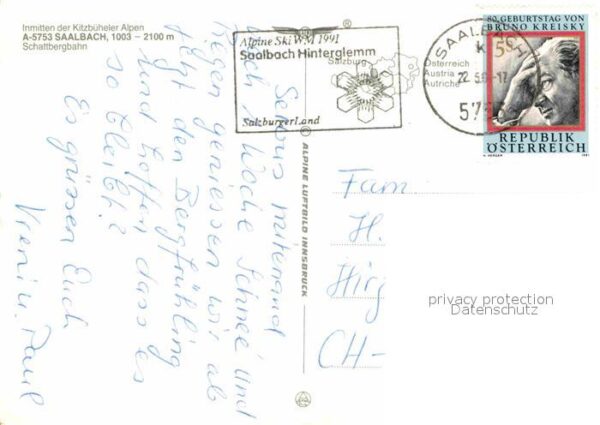 Inmitten der Kitzbüheler Alpen
A-5753 SAALBACH, 1003 – 2100 m
Schattbergbahn
Servus mitenand
Nach 1 Woche Schnee und
Regen geniessen wir ab
jetzt den Bergfrühling
und hoffen dass es
so bleibt?
Es grüssen Euch
Vreni u. Paul
© ALPINE LUFTBILD INNSBRUCK
Alpine Ski WM 1991
Saalbach Hinterglemm
Salzburg
SalzburgerLand
Österreich
Austria
Autriche
SAALBACH
80. GEBURTSTAG VON
BRUNO KREISKY
REPUBLIK
ÖSTERREICH
1991
Fam
H.
CH-
privacy protection
Datenschutz